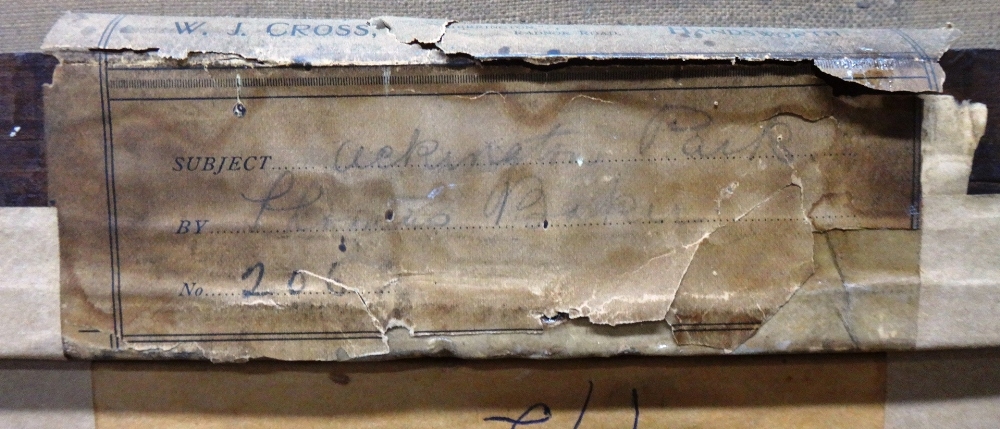 W. J. CROSS, RADNOR ROAD, HANDSWORTH
SUBJECT ackington Park
BY Thomas Baker
No. 206